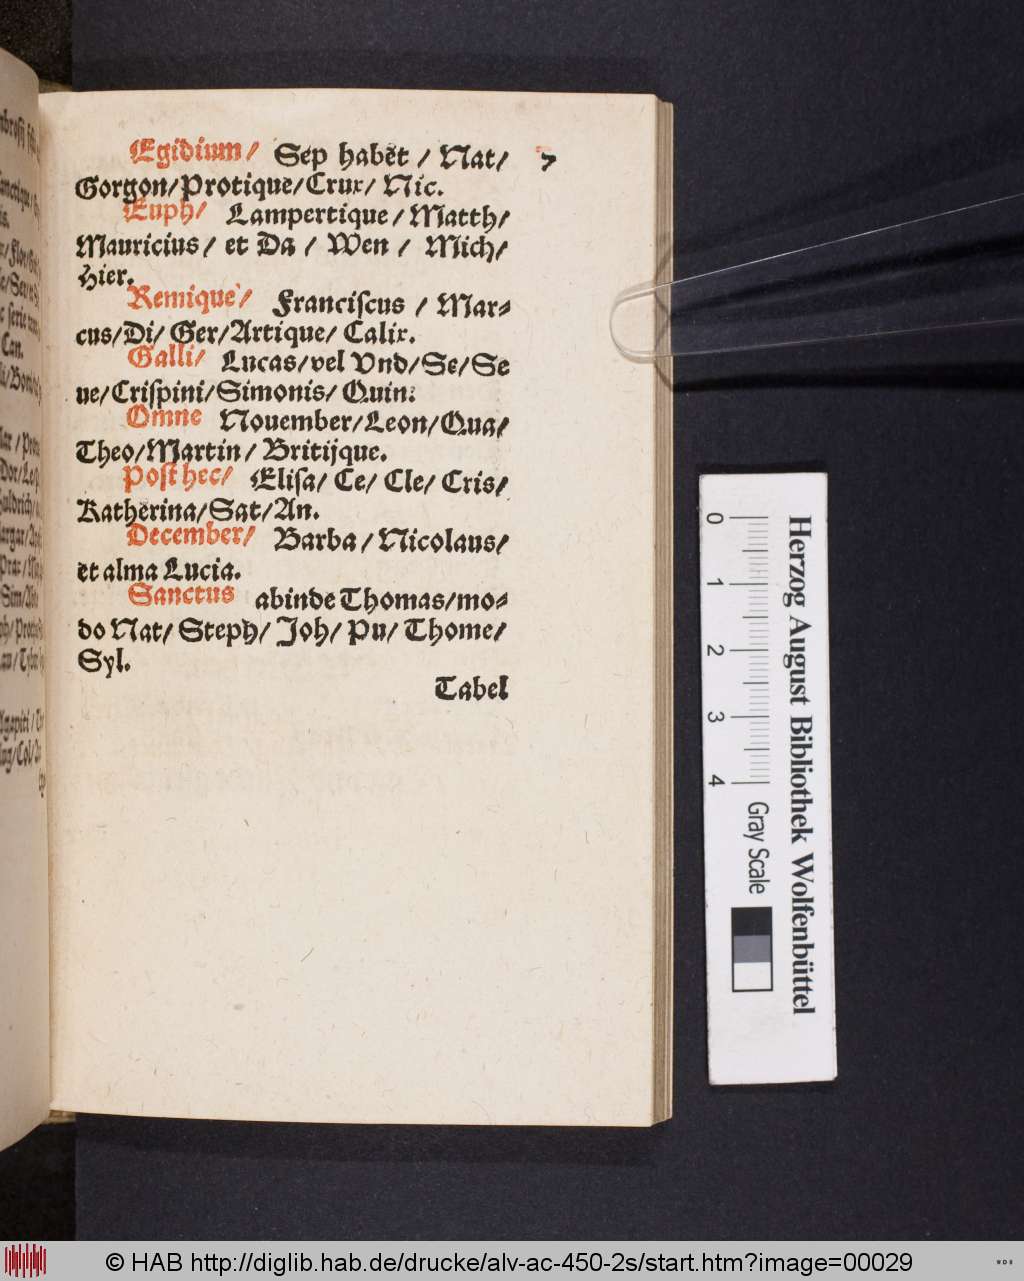 Egidium/ Sep habēt / Nat/ 7
Gorgon/Protique/Crux/ Nic.
Euph/ Lampertique/Matth/
Mauricius/ et Da / Wen / Mich/
Hier.
Remique/ Franciſcus / Mar⸗
cus/Di/ Ger/Artique/ Calix.
Galli/ Lucas/vel Vnd/Se/Se
ue/Criſpini/Simonis/ Quin.
Omne Nouember/Leon/Qua/
Theo/Martin/ Britijque.
Poſt hec/ Eliſa/ Ce/ Cle/ Cris/
Katherina/Sat/An.
December/ Barba / Nicolaus/
et alma Lucia.
Sanctus abinde Thomas/mo⸗
do Nat/ Steph/ Joh/ Pu/ Thome/
Syl.
Tabel
Herzog August Bibliothek Wolfenbüttel
0 1 2 3 4 Gray Scale
© HAB http://diglib.hab.de/drucke/alv-ac-450-2s/start.htm?image=00029